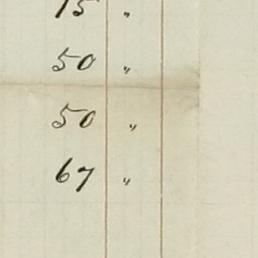 15 "
50 "
50 "
67 "